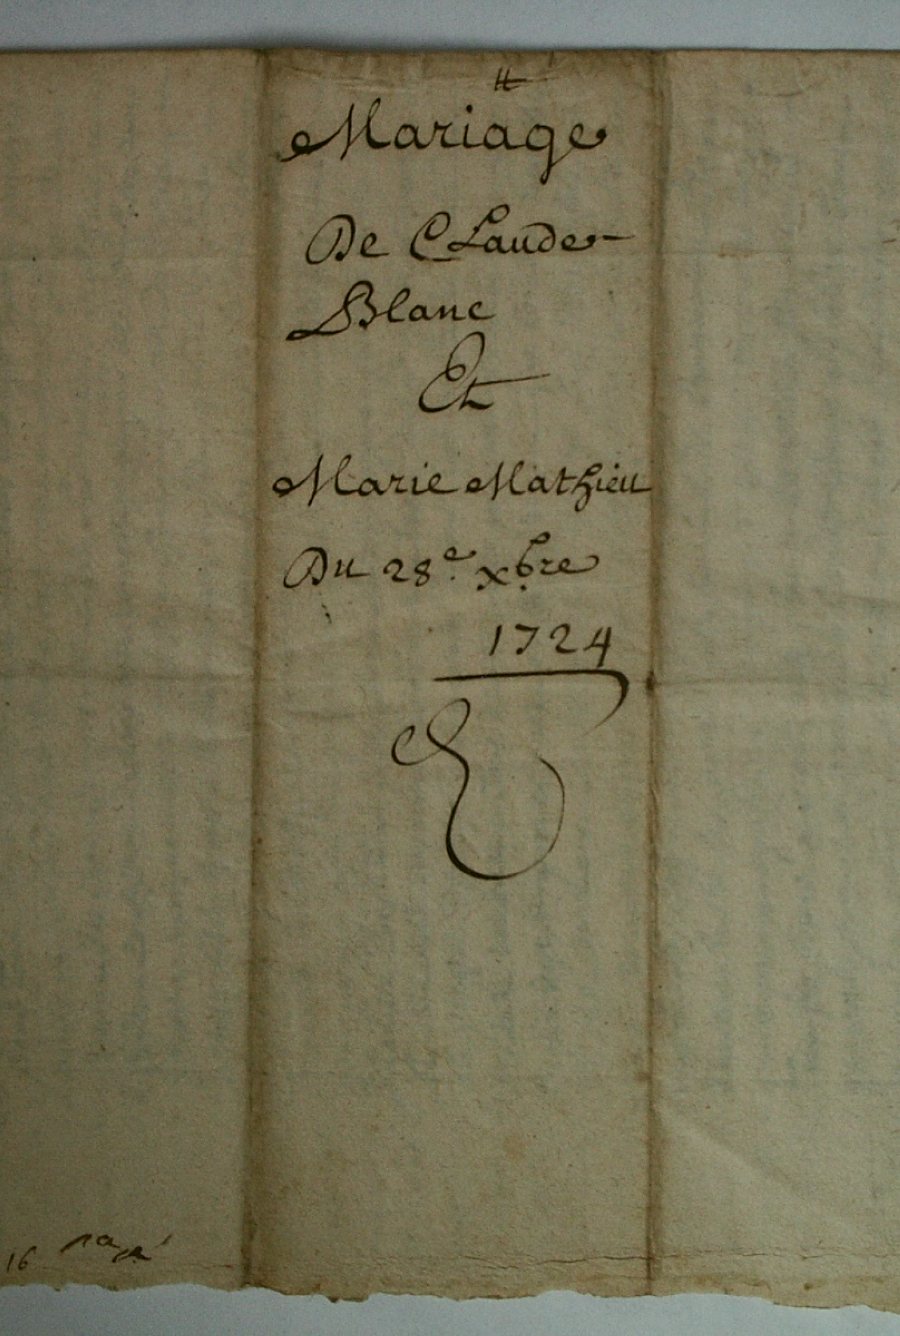 Mariage
De CLaude
Blanc
Et
Marie Mathieu
Du 28e xbre
1724
16